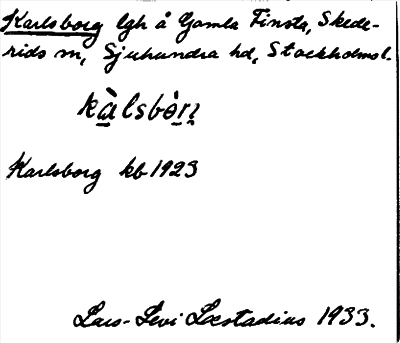 Karlsborg lgh å Gamla Finsta, Skede-
rids sn, Sjuhundra hd, Stockholms l.
kàlsbòrị
Karlsborg kb 1923
Lars-Levi Læstadius 1933.